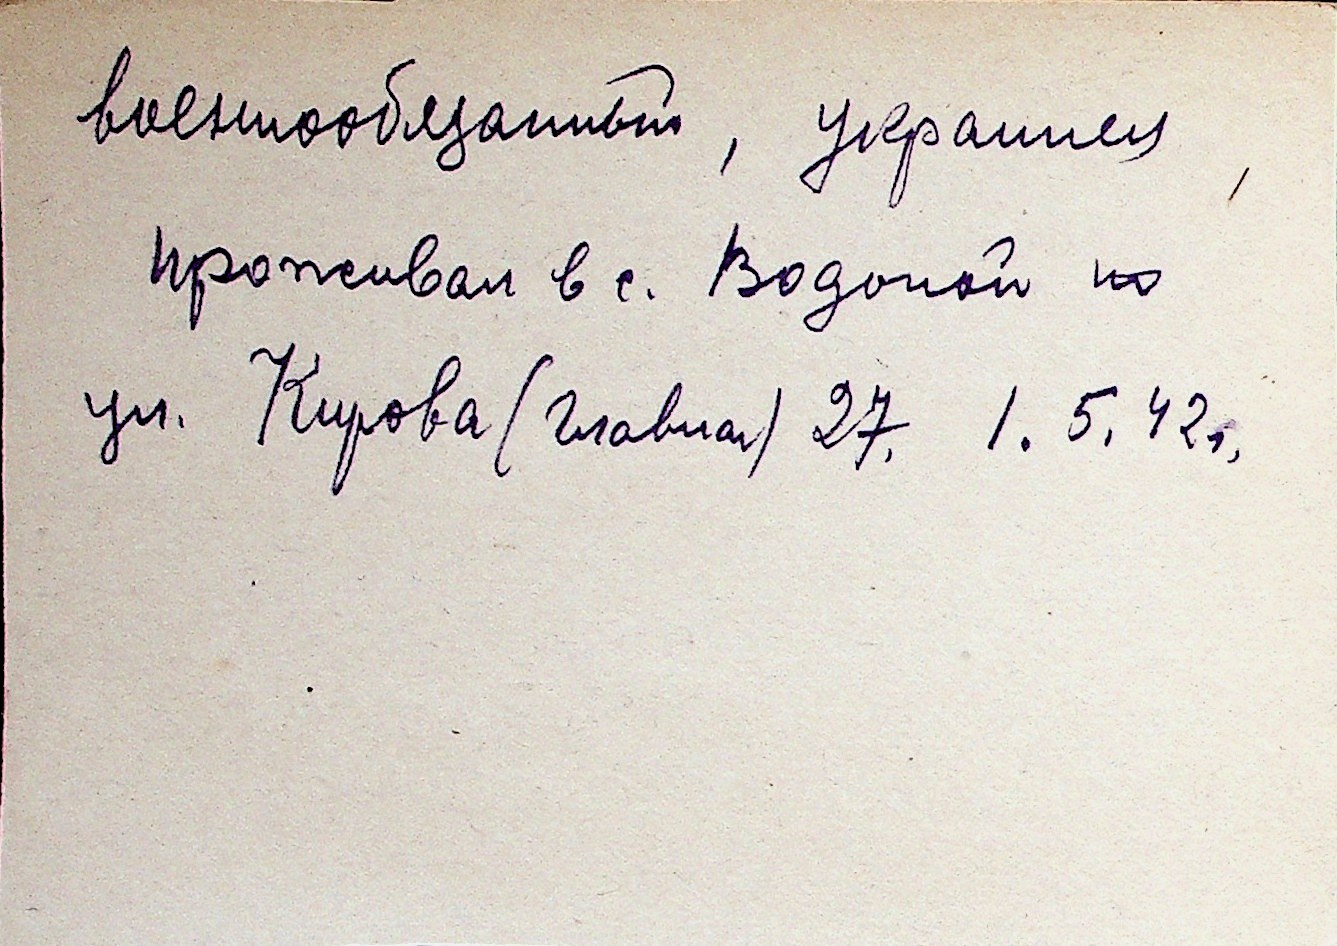 военнообязанный, украинец,
проживал в с. Водопой по
ул. Кирова (Главная) 27. 1.5.42г.